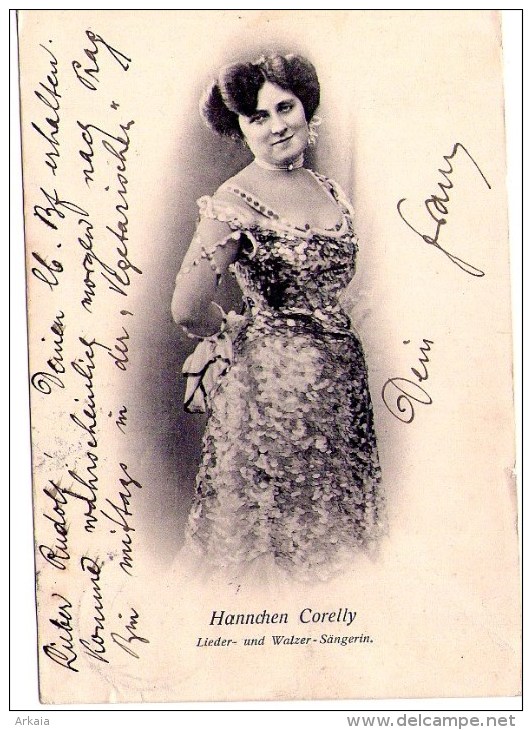 Lieber Rudolf! Deinen lb. Bf erhalten.
Komme wahrscheinlich morgen nach Prag
Bin mittags in der „Vegetarischen"
Dein Franz
Hannchen Corelly
Lieder- und Walzer-Sängerin.
Arkaia
www.delcampe.net